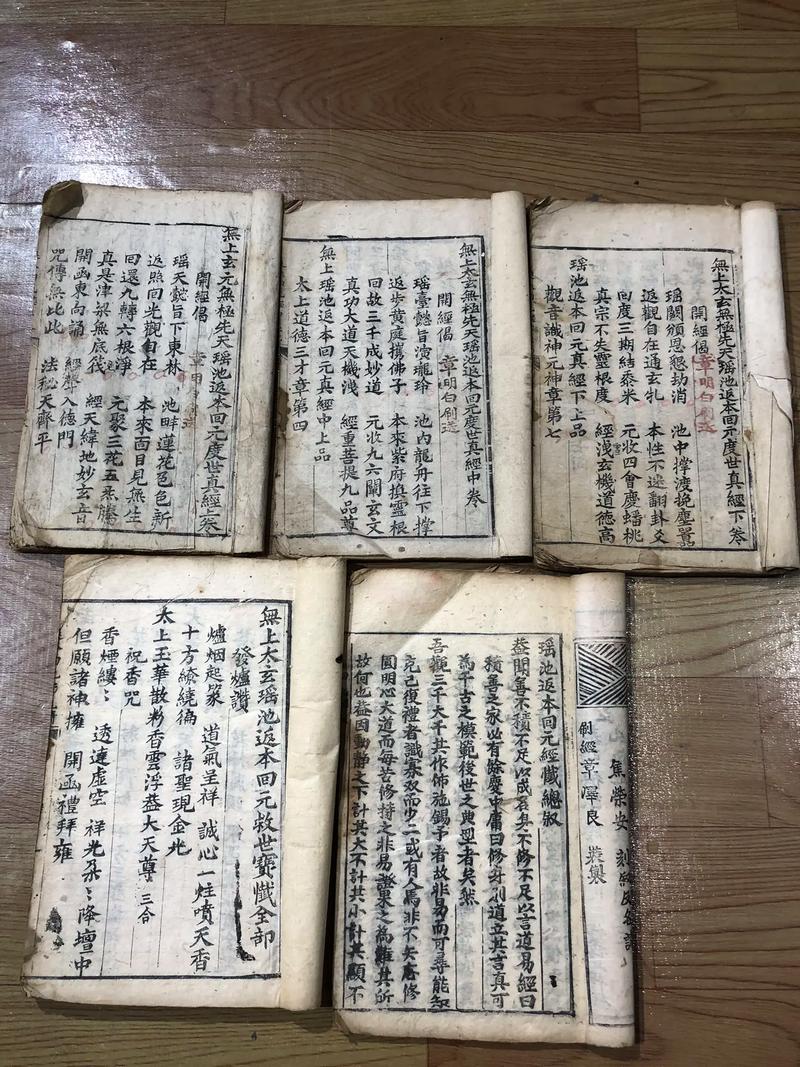 無上玄元無極先天瑤池返本回元度世真經上卷
開經偈
章明白刷送
瑶天懿旨下東林 池畔蓮花色色新
返照回光觀自在 本來面目見無生
回還九轉六根淨 元聚三花五炁騰
真是津梁無底筏 經天緯地妙玄音
開函東向誦 經聲入德門
咒傳無比此 法秘天齊平
無上太玄無極先天瑤池返本回元度世真經中卷
開經偈 章明白刷送
瑶臺懿旨演瓏玲 池內龍舟往下撐
返步黄庭携佛子 本來紫府換靈根
回故三千成妙道 元收九六闡玄文
真功大道天機淺 經重菩提九品尊
無上瑶池返本回元真經中上品
太上道德三才章第四
無上太玄無極先天瑶池返本回元度世真經下卷
開經偈
章明白刷送
瑶闕頒恩懇劫消 池中撐渡挽塵囂
返觀自在通玄牝 本性不迷翻卦爻
回度三期結泰米 元收四會慶蟠桃
真宗不失靈根度 經淺玄機道德高
瑶池返本回元真經下上品
觀音識神元神章第七
無上太玄瑶池返本回元救世寶懺全部
發爐讚
爐烟起篆 道氣呈祥 誠心一炷噴天香
十方繚繞徧 諸聖現金光
太上玉華散彩香雲浮葢大天尊 三合
祝香咒
香煙縷〻 透達虚空 祥光朶〻降壇中
但願諸神擁 開函禮拜雍
瑶池返本回元經懺總叙
葢聞善不積不足以成名其不修不足以言道易經曰
積善之家必有餘慶中庸曰修身則道立其言真可
為千古之模範後世之典型者矣然
吾觀三千大千共作佛施錫予者故非易而可尋能知
克己復禮者識寡双而少二或有人焉非不矢志修
圓明心大道而每苦修持之非易證果之為難其所
故何也葢因動静之下計其大不計其小計其顯不
刷經章澤良 裝集
焦榮安